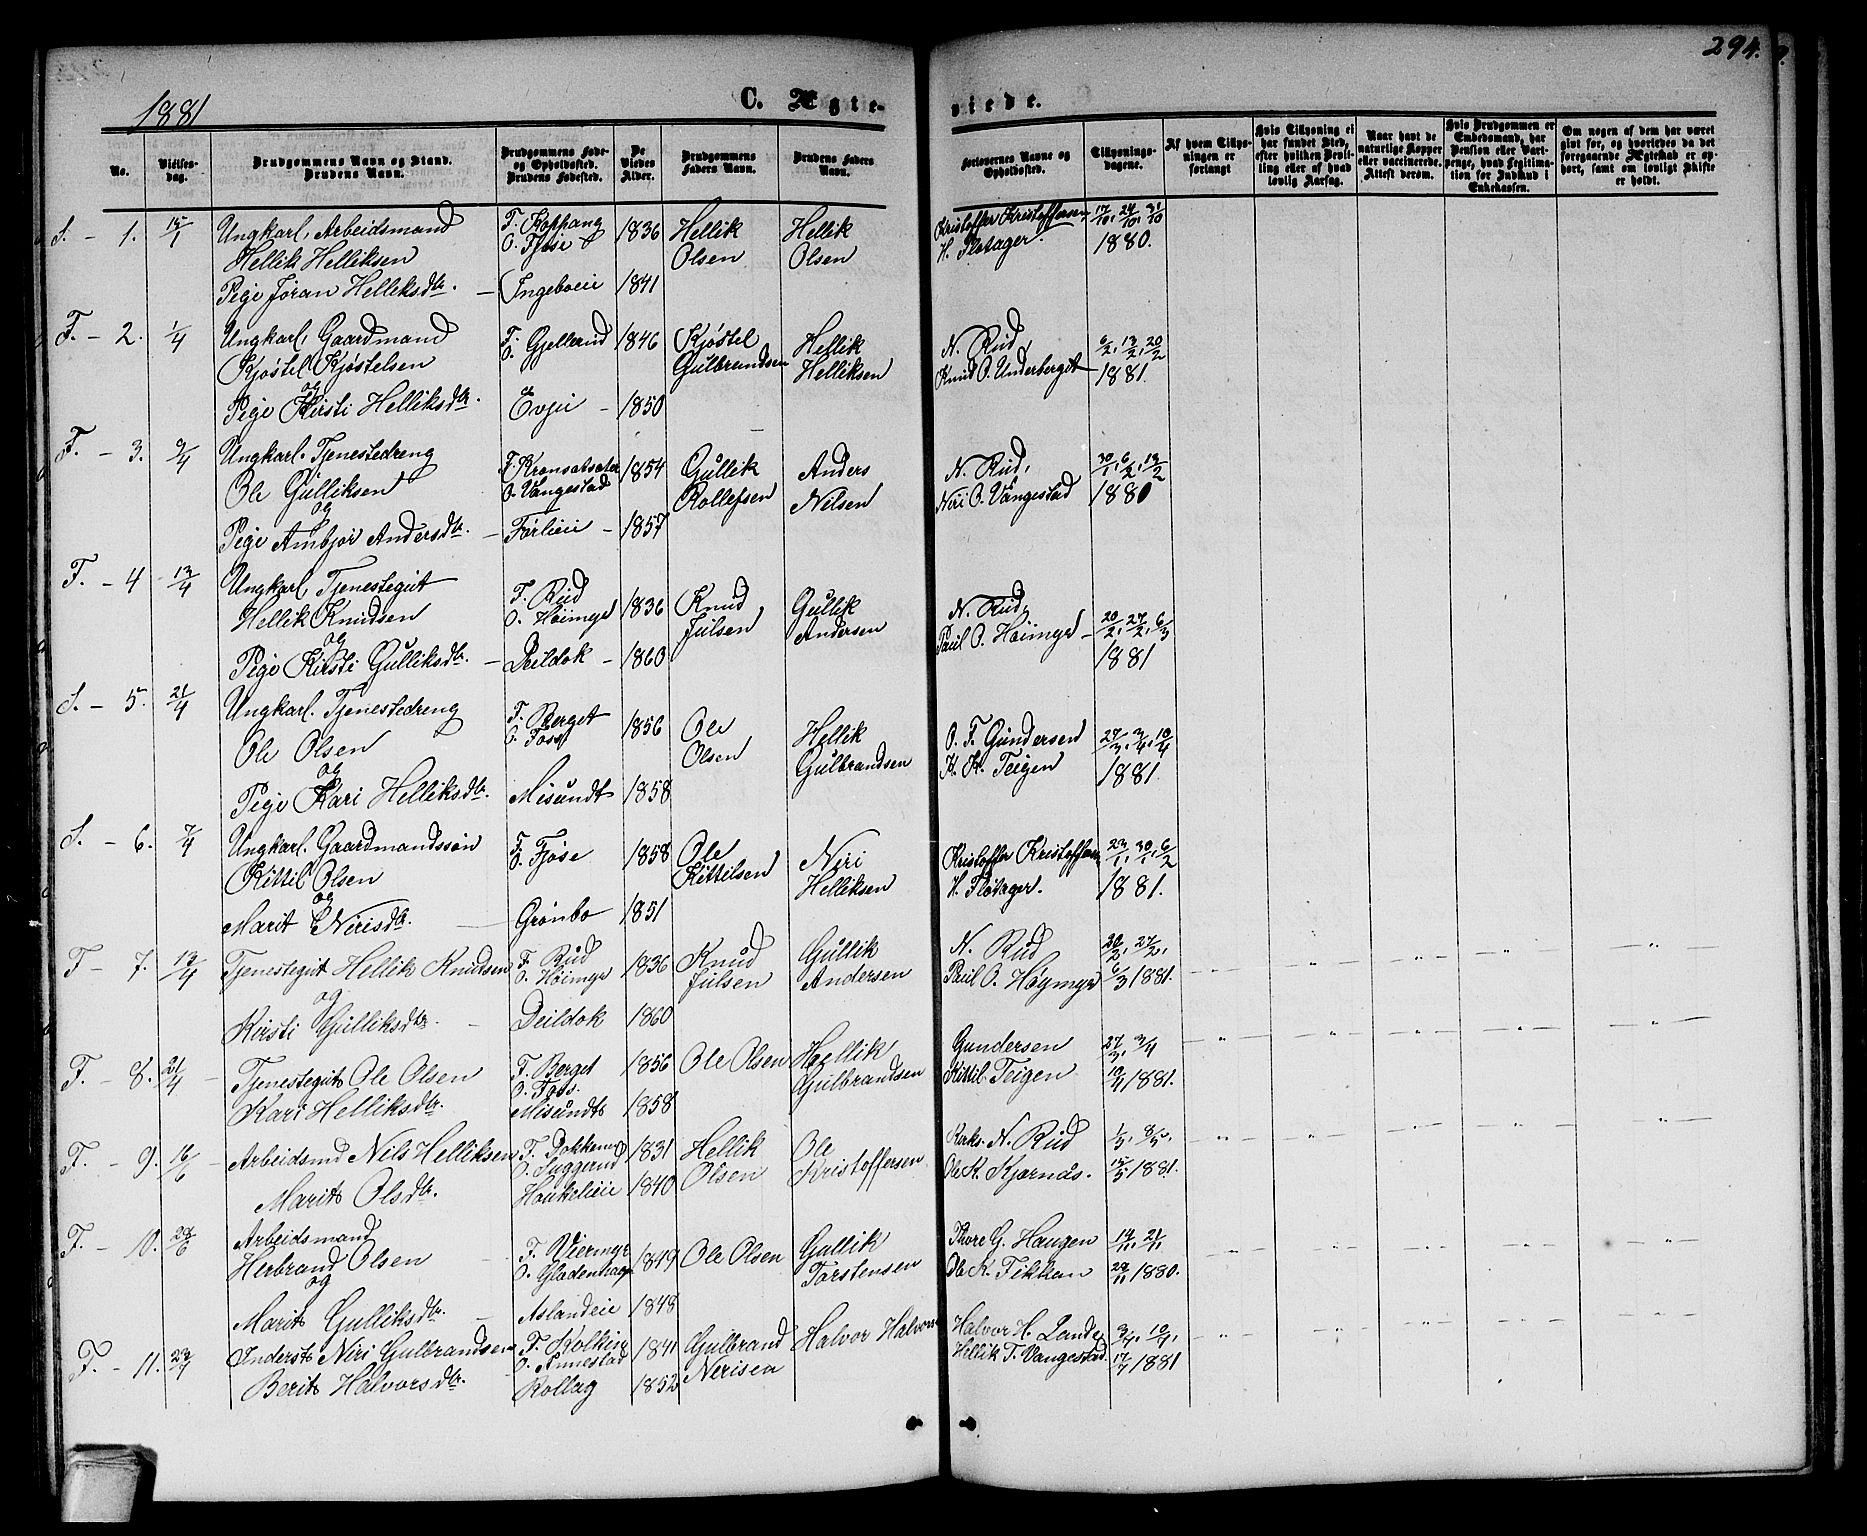 294.
1881
C. Ægte-
viede.
No.
Vielses-dag.
Brudgommens Navn og Stand. Brudens Navn.
Brudgommens Føde- og Opholdssted. Brudens Fødested.
De Viedes Alder.
Brudgommens Faders Navn.
Brudens Faders Navn.
Forlovernes Navne og Opholdssted.
Tillysnings-dagene.
Af hvem Tillysningen er forlangt
Hvis Tillysning ei har fundet Sted, efter hvilken Bevilling eller af hvad lovlig Aarsag.
Naar havt de naturlige Kopper eller vaccinerede. Attest derom.
Hvis Brudgommen er Embedsmand, har Pension eller Vartpenge, hvad Legitimation for Indskud i Enkekassen.
Om nogen af dem har været givt før, og hvorledes da det foregaaende Ægteskab er ophørt, samt om lovligt Skifte er holdt.
S. - 1. 15/1 Ungkarl, Arbeidsmand F. Kophang 1836 Hellik Hellik Kristoffer Kristoffersen 17/10, 24/10, 31/10
Hellik Helliksen O. Fjøse Olsen Olsen H. Flotager. 1880.
Pige Jøran Helliksdtr. - Ingeboeie 1841
F. - 2. 1/4 Ungkarl, Gaardmand F. Gjellerud 1846 Kjøstel Hellik N. Rud, 6/2, 13/2, 20/2
Kjøstel Kjøstelsen O. Gulbrandsen Helliksen Knud O. Underberget 1881.
og
Pige Kirsti Helliksdtr. Evju - 1850
F. - 3. 9/4 Ungkarl. Tjenestedreng 1854 Gullik Anders N. Rud, 30/1, 6/2, 13/2
Ole Gulliksen O. Vangestad Rollefsen Nilsen Niri O. Vangestad 1880
og
Pige Ambjør Andersdtr. - Førlieie - 1857
F. - 4 13/4 Ungkarl, Tjenestegut F. Rud 1836 Knud Gullik N. Rud, 20/2, 27/2, 6/3
Hellik Knudsen O. Høimyr Julsen Andersen Paul O. Høimyr - 1881
og
Pige Kirsti Gulliksdtr. - Deildok - 1860
S. - 5. 21/4 Ungkarl. Tjenestedreng F. Berget 1856 Ole Hellik O. F. Gundersen 27/3, 3/4, 10/4
Ole Olsen O. Foss Olsen Gulbrandsen K. K. Teigen 1881.
og
Pige Kari Helliksdtr. Misundt 1858
S. - 6. 7/4 Ungkarl. Gaardmandssøn F. O. Fjøse 1858 Ole Niri Kristoffer Kristoffersen 23/1, 30/1, 6/2
Kittil Olsen Kittilsen Helliksen H. Flotager. 1881.
og
Marit Nirisdtr. - Grønbo 1851
F - 7. 13/4 Tjenestegut Hellik Knudsen F. Rud 1836 Knud Gullik N. Rud 20/2, 27/2,
og O. Høimyr Julsen Andersen Paul O. Høymyr 6/3 1881.
Kirsti Gulliksdtr. - Deildok 1860
F. - 8. 21/4 Tjenestegut Ole Olsen F. Berget 1856 Ole Olsen Hellik Gundersen 27/3, 3/4
Kari Helliksdtr. O. Foss. Gulbrandsen Kittil Teigen 10/4 1881.
Misundt 1858
F. - 9. 16/6 Arbeidsmd Nils Helliksen F. 1831 Hellik Ole Kirks. N. Rud 1/5, 8/5,
Marit Olsdtr. O. Juggerud Olsen Kristoffersen Ole K. Kjærnaas. 15/5 1881.
Haukelieie 1840
F. - 10. 28/6 Arbeidsmand F. Viermyr 1849 Ole Olsen Gullik Thore G. Haugen 14/11, 21/11
Herbrand Olsen O. Gladenhaug Torstensen Ole K. Fikkan 28/11 1880.
og
Marit Gulliksdtr. - Aslandeie 1848
F. - 11. 23/7 Inderst Niri Gulbrandsen F. 1841 Gulbrand Halvor Halvors Halvor H. Lande 3/7, 10/7,
Berit Halvorsdtr. O. Annestad Nerisen Hellik T. Vangestad 17/7 1881
Rollag 1852